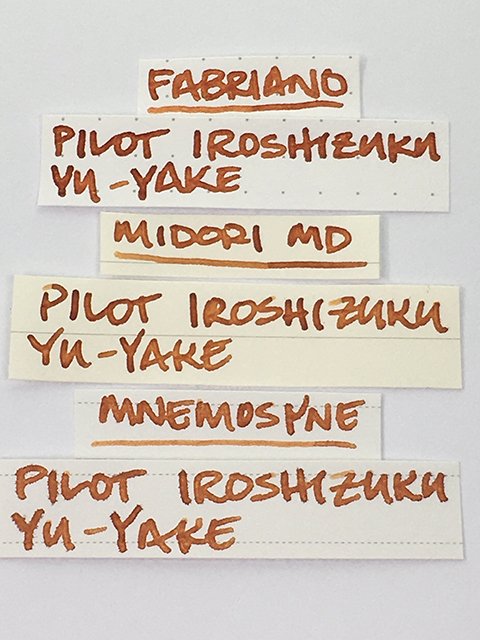 FABRIANO
PILOT IROSHIZUKU
YU-YAKE
MIDORI MD
PILOT IROSHIZUKU
YU-YAKE
MNEMOSYNE
PILOT IROSHIZUKU
YU-YAKE